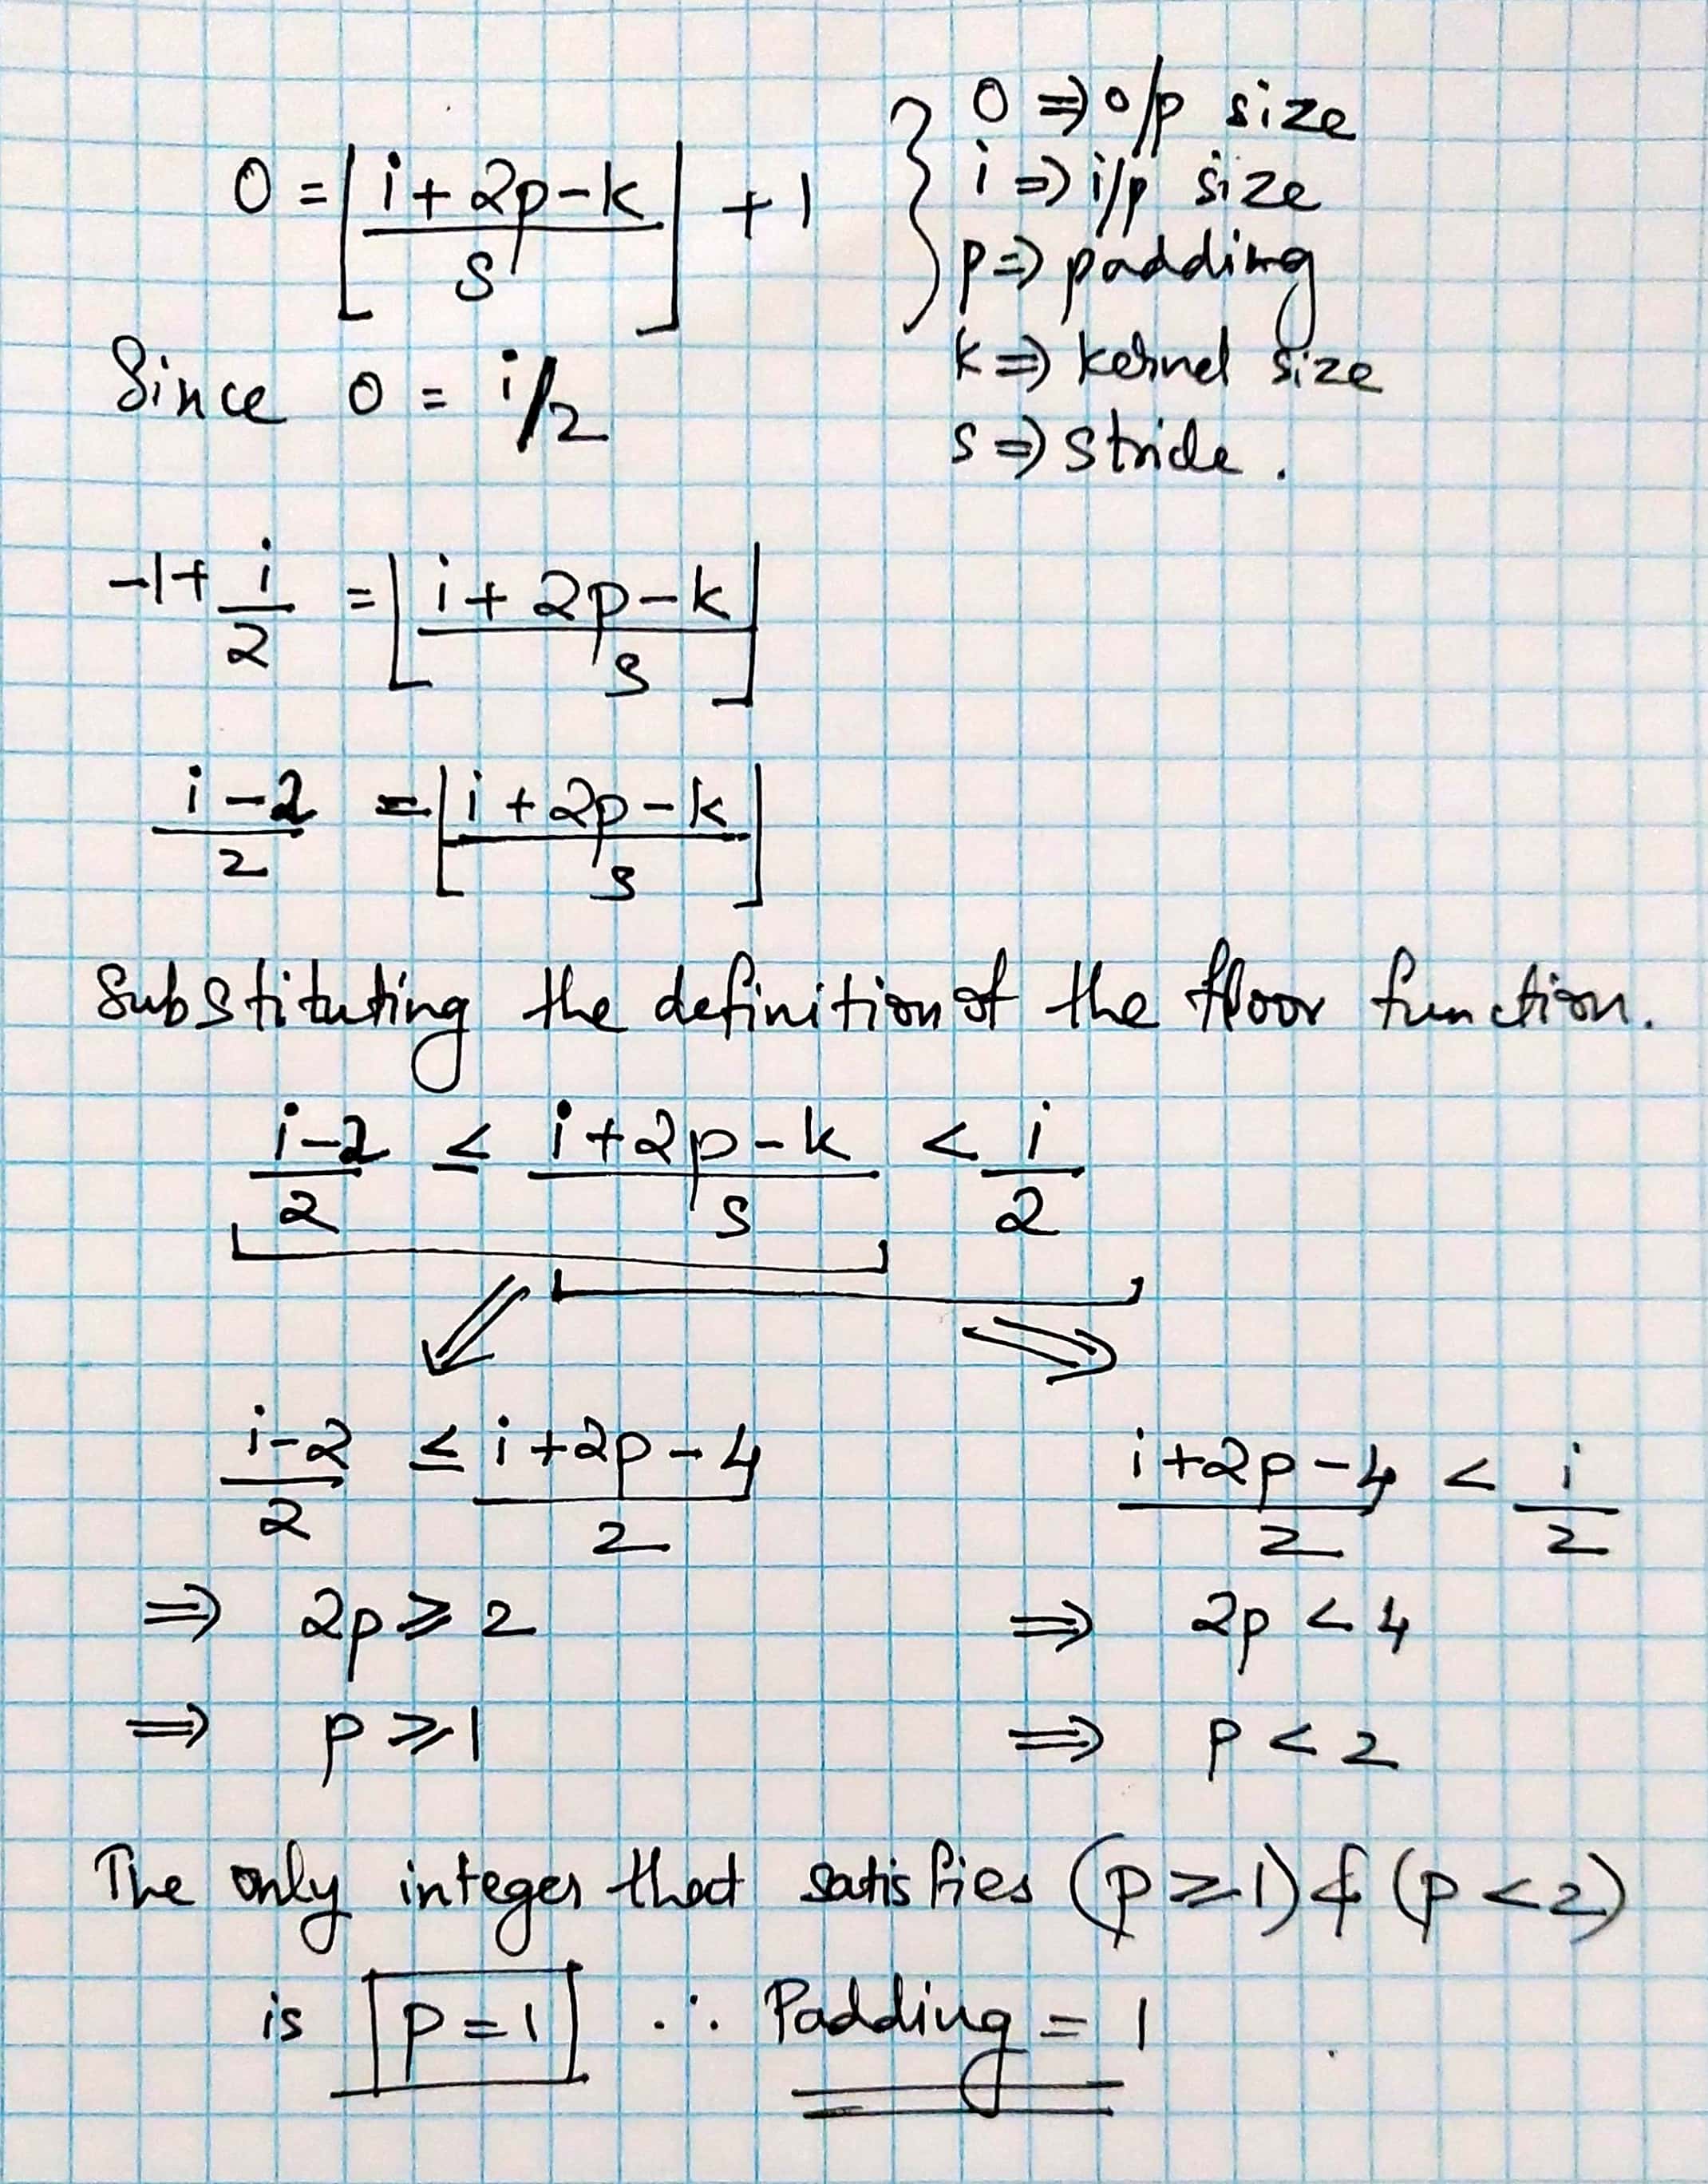 O = ⌊(i + 2p - k)/s⌋ + 1
} O ⇒ o/p size
i ⇒ i/p size
p ⇒ padding
k ⇒ kernel size
s ⇒ stride.
Since o = i/2
-1 + i/2 = ⌊(i + 2p - k)/s⌋
(i - 2)/2 = ⌊(i + 2p - k)/s⌋
Substituting the definition of the floor function.
(i - 2)/2 ≤ (i + 2p - k)/s < i/2
(i - 2)/2 ≤ (i + 2p - 4)/2
⇒ 2p ≥ 2
⇒ p ≥ 1
(i + 2p - 4)/2 < i/2
⇒ 2p < 4
⇒ p < 2
The only integer that satisfies (p ≥ 1) & (p < 2)
is p = 1 ∴ Padding = 1